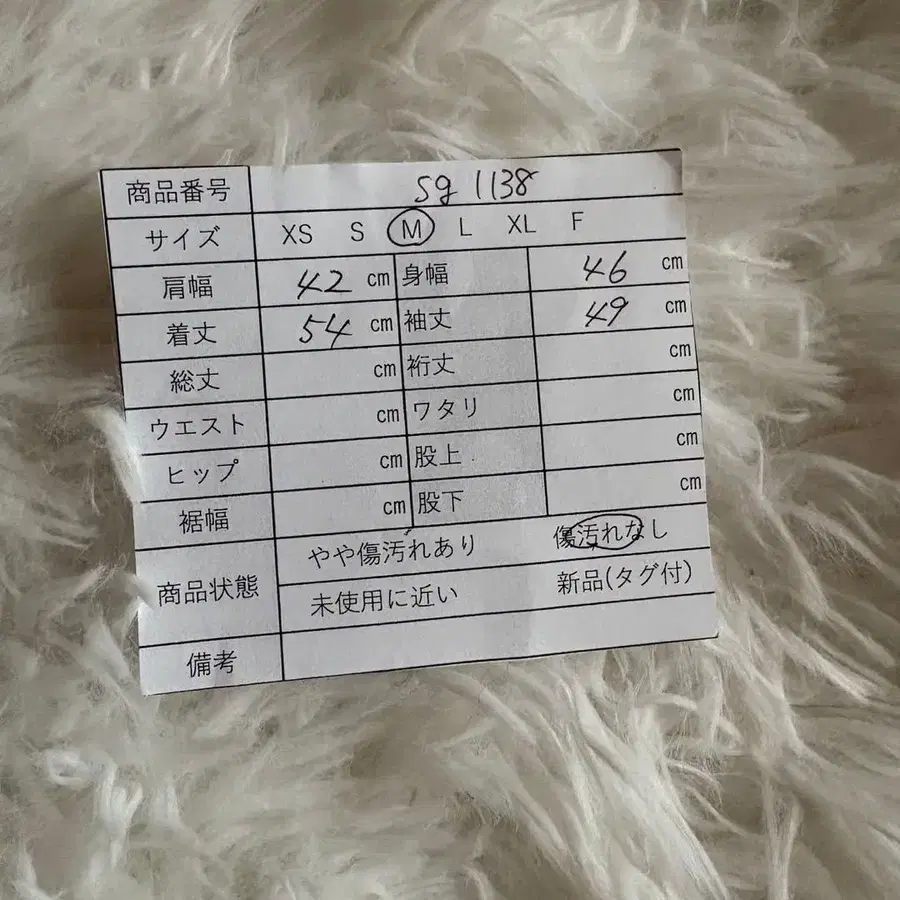 商品番号 sg 1138
サイズ XS S M L XL F
肩幅 42 cm 身幅 46 cm
着丈 54 cm 袖丈 49 cm
総丈 cm 裄丈 cm
ウエスト cm ワタリ cm
ヒップ cm 股上 cm
裾幅 cm 股下 cm
商品状態 やや傷汚れあり 傷汚れなし
未使用に近い 新品(タグ付)
備考